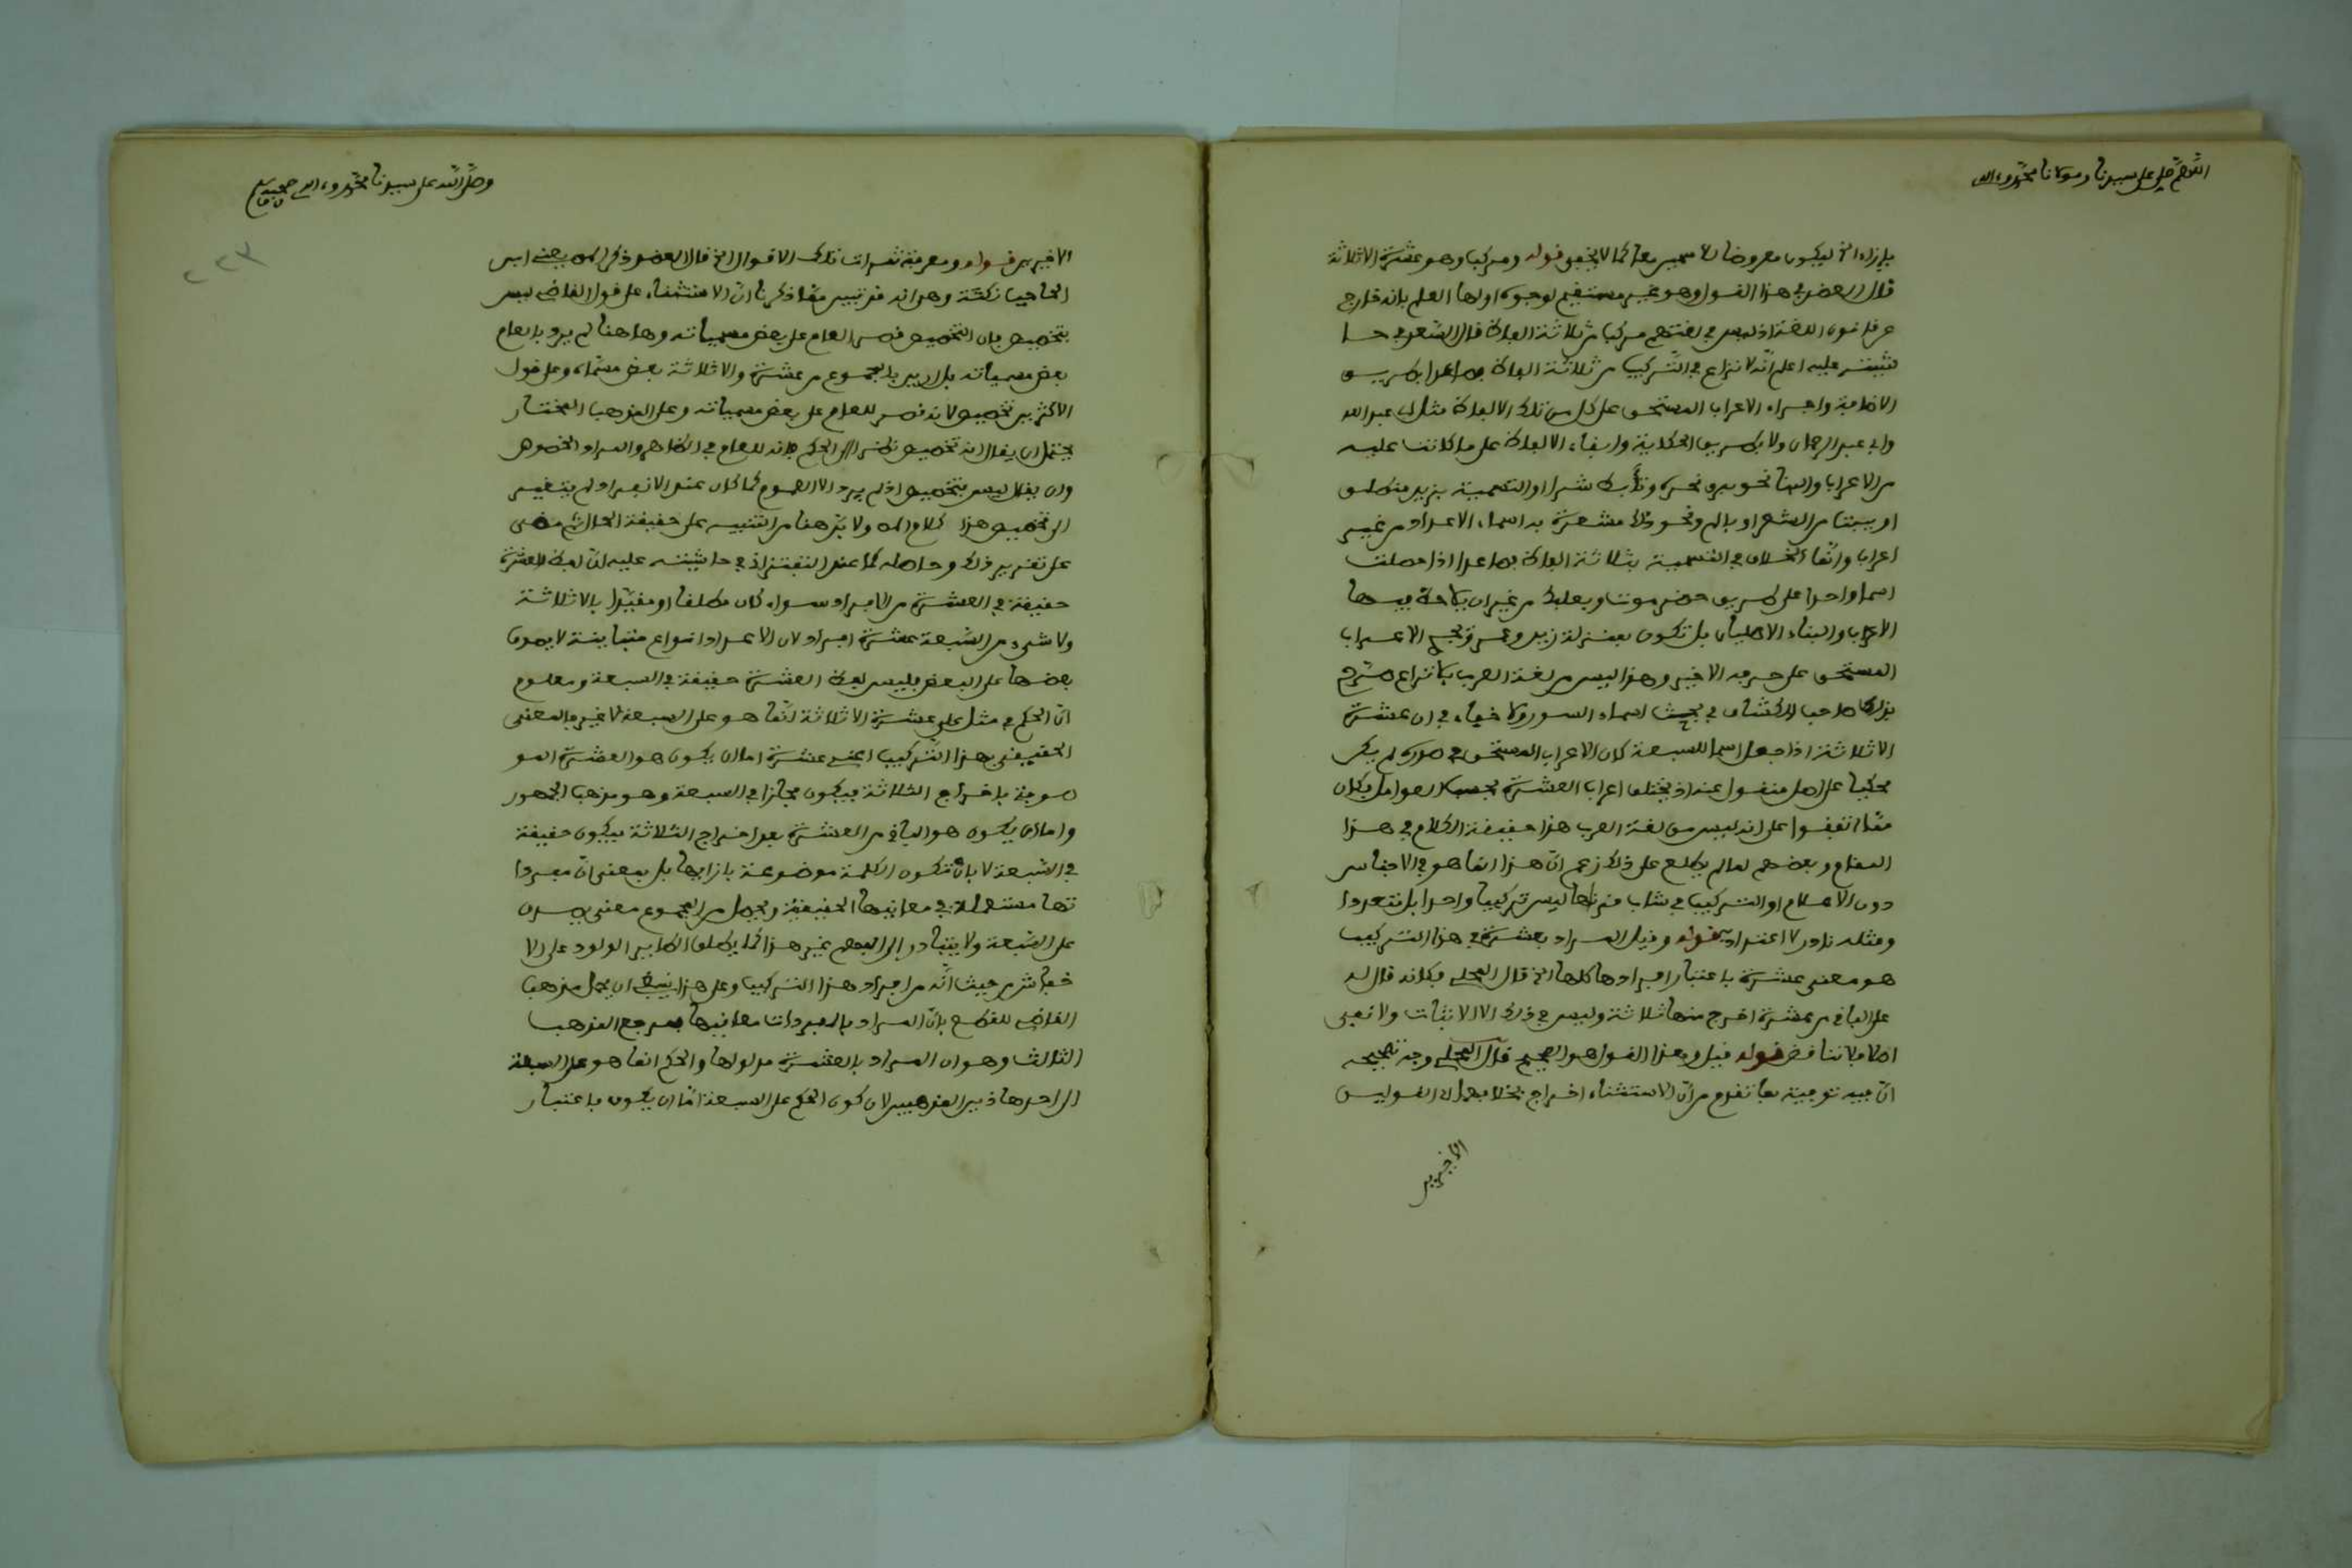 اللهم صل على سيدنا ومولانا محمد وءاله
بإزاء الخ ليكون معروضا كما لا يخفى قوله ومركب وهو عشرة الا ثلاثة
قال العضد في هذا القول وهو غير مستقيم لوجوه اولها العلم بانه خارج
عن قانون اللغة اذ ليس في لغتهم مركب من ثلاثة الفاظ قال السعد في حا
شيته عليه اعلم انه لا نزاع في التركيب من ثلاثة الفاظ فصاعدا بطريق
الاضافة واجراء الاعراب المستحق على كل من تلك الالفاظ مثل ابي عبد الله
وابي عبد الرحمان ولا بطريق الحكاية وابقاء الالفاظ على ما كانت عليه
من الاعراب والبنا نحو برق نحره وتأبط شرا او التسمية بزيد منطلق
او ببيت من الشعر او بالم ونحو ذلك مشعرة به اسماء الاعداد من غير
اعراب وانما الخلاف في التسمية بثلاثة الفاظ فصاعدا اذا جعلت
اسما واحدا على طريق حضرموت وبعلبك من غير ان يلاحظ فيها
الاعراب والبناء الاصليان بل تكون بمنزلة زيد وعمرو يجري الاعراب
المستحق على حرفه الاخير وهذا ليس من لغة العرب بلا نزاع صرح
بذلك صاحب الكشاف في بحث اسماء السور ولا خفاء في ان عشرة
الا ثلاثة اذا جعل اسما للسبعة كان الاعراب المستحق في صدره لم يكن
محكيا على اصل منقول عنه اذ يختلف اعراب العشرة بحسب العوامل فكان
مما اتفقوا على انه ليس من لغة العرب هذا حقيقة الكلام في هذا
المقام وبعضهم لما لم يطلع على ذلك زعم ان هذا انما هو في الاجناس
دون الاعلام او التركيب في شاب قرناها ليس تركيبا واحدا بل متعددا
ومثله نادر لا اعتداد به قوله وقيل المراد بعشرة في هذا التركيب
هو معنى عشرة باعتبار افرادها كلها الخ قال المحلي فكانه قال له
علي الباقي من عشرة اخرج منها ثلاثة وليس في ذلك الا الاثبات ولا نفي
اصلا فلا تناقض قوله قيل وهذا القول هو الصحيح قال المحلي وجه تصحيحه
ان فيه توفية بما تقدم من ان الاستثناء اخراج بخلاف القولين
الاخيرين
وصلى الله على سيدنا محمد وءاله وصحبه وسلم
٢٢٣
الاخيرين قوله ومعرفة ثمرات تلك الاقوال الخ قال العضد ذكر يعني ابن
الحاجب نكتة وهي انه قد تبين مما ذكرنا ان الاستثناء على قول القاضي ليس
بتخصيص فان التخصيص قصر العام على بعض مسمياته وهاهنا لم يرد بالعام
بعض مسمياته بل اريد بالمجموع من عشرة والا ثلاثة بعض مسماه وعلى قول
الاكثرين تخصيص لانه قصر للعام على بعض مسمياته وعلى المذهب المختار
يحتمل ان يقال انه تخصيص نظرا الى الحكم فانه للعام في الظاهر والمراد الخصوص
وان يقال ليس بتخصيص اذ لم يرد الا العموم كما كان عند الانفراد لم يتغير
الى تخصيص هذا كلامه ولا بد هنا من التنبيه على حقيقة الحال ثم مضى
على تقرير ذلك وحاصله كما عند التفتازاني في حاشيته عليه ان لفظ العشرة
حقيقة في العشرة من الافراد سواء كان مطلقا او مقيدا بالا ثلاثة
ولا شيء من السبعة عشرة افراد لان الاعداد انواع متباينة لا يصدق
بعضها على البعض فليس لفظ العشرة حقيقة في السبعة ومعلوم
ان الحكم في مثل علي عشرة الا ثلاثة انما هو على السبعة لا غير فالمعنى
الحقيقي بهذا التركيب اعني عشرة اما ان يكون هو العشرة المو
صوفة باخراج الثلاثة فيكون مجازا في السبعة وهو مذهب الجمهور
واما ان يكون هو الباقي من العشرة بعد اخراج الثلاثة فيكون حقيقة
في السبعة لا بان تكون الكلمة موضوعة بازايها بل بمعنى ان مفردا
تها مستعملة في معانيها الحقيقية ويحصل من المجموع معنى يصدق
على السبعة ولا يتبادر الى الفهم غير هذا كما يطلق الطاير الولود على الا
خفاش من حيث انه من افراد هذا التركيب وعلى هذا ينبغي ان يحمل مذهب
القاضي للقطع بان المراد بالمفردات معانيها فمرجع المذهب
الثالث وهو ان المراد بالعشرة مدلولها والحكم انما هو على السبعة
الى احد هاذين المذهبين لان كون الحكم على السبعة اما ان يكون باعتبار